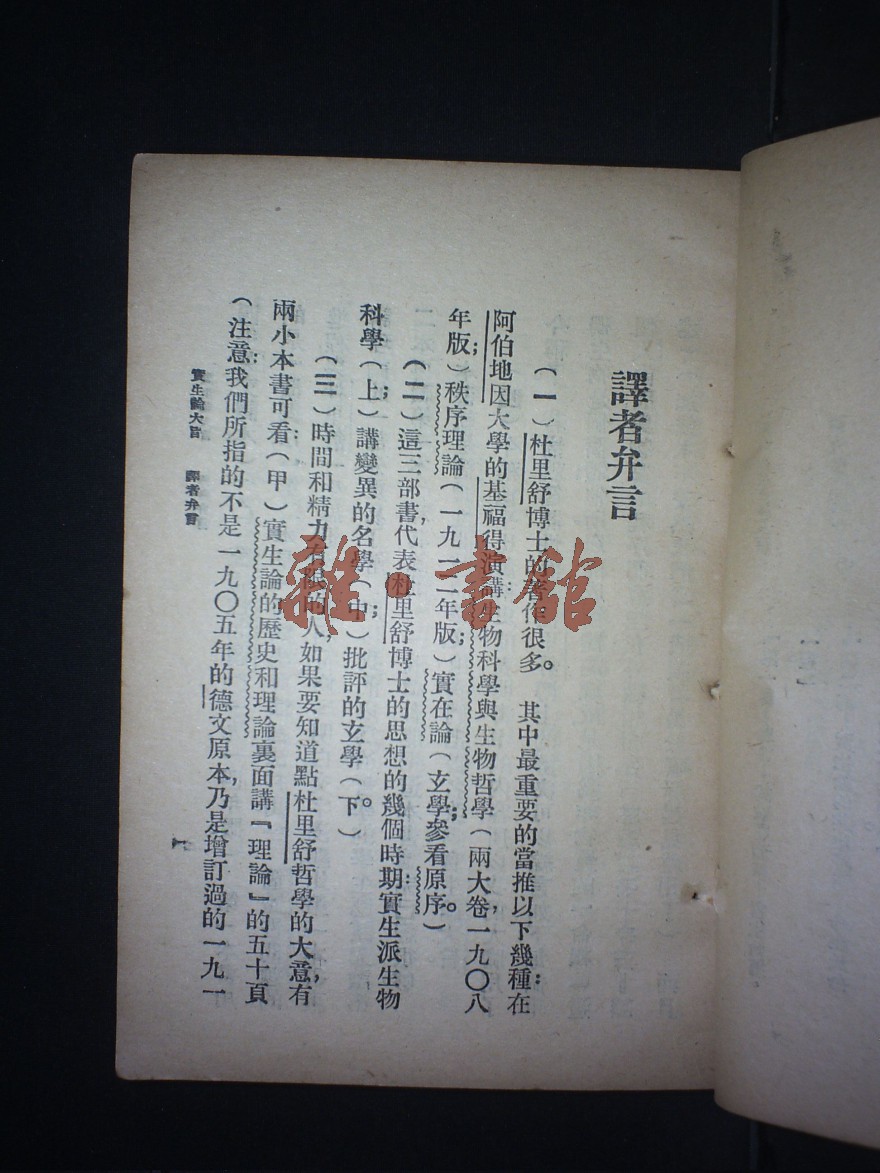 譯者弁言
(一)杜里舒博士的著作很多。其中最重要的當推以下幾種:在
阿伯地因大學的基福得演講:生物科學與生物哲學(兩大卷,一九〇八
年版);秩序理論(一九一二年版);實在論(玄學;參看原序。)
(二)這三部書,代表杜里舒博士的思想的幾個時期:實生派生物
科學(上);講變異的名學(中);批評的玄學(下)。
(三)時間和精力有限的人,如果要知道點杜里舒哲學的大意,有
兩小本書可看:(甲)實生論的歷史和理論裏面講『理論』的五十頁
(注意:我們所指的不是一九〇五年的德文原本,乃是增訂過的一九一
實生論大旨 譯者弁言
雜·書館